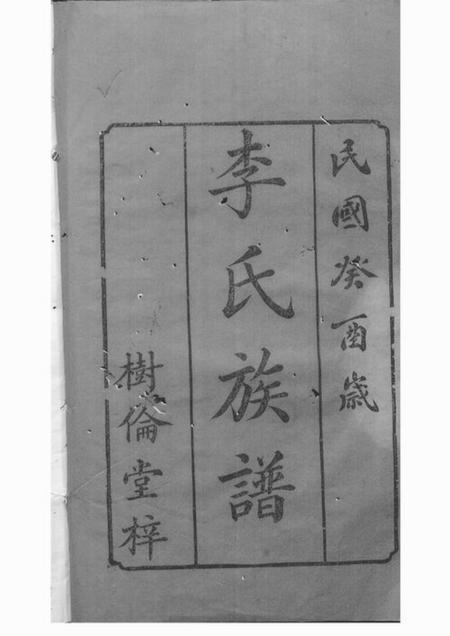 民國癸酉歲
李氏族譜
樹倫堂梓